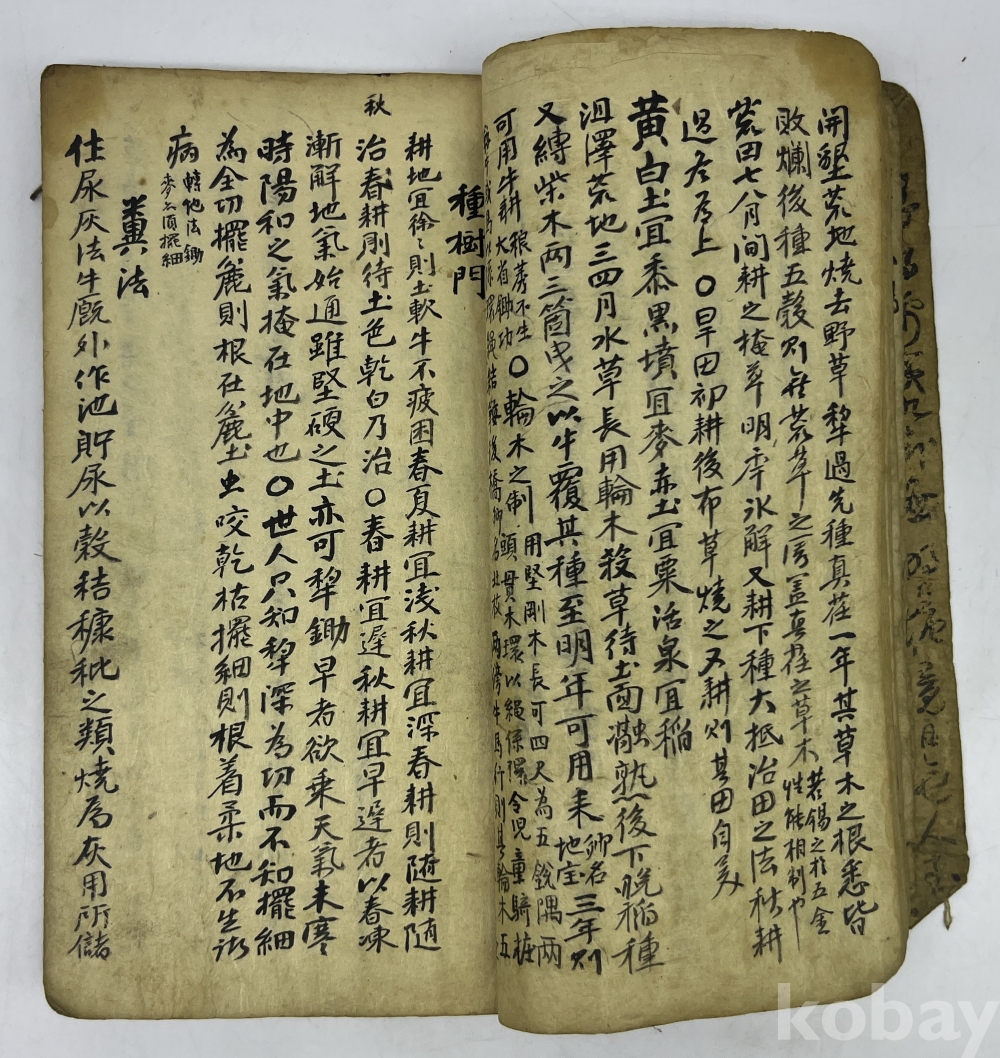 開墾荒地燒去野草犁過先種真荏一年其草木之根悉皆
敗爛後種五穀則無荒草之害盖真荏之草木
若錫之於五金
性能相制也
荒田七八月間耕之掩草明年氷解又耕下種大抵治田之法秋耕
過冬為上〇旱田初耕後布草燒之又耕則其田自美
黃白土宜黍黑墳宜麥赤土宜粟活泉宜稲
沮澤荒地三四月水草長用輪木殺草待土面融熟後下晚稲種
又縛柴木兩三箇曳之以牛覆其種至明年可用耒
鄉名
地宝
三年則
可用牛耕
稂莠不生
大省鋤功
〇輪木之制
用堅剛木長可四尺為五銳隅兩
頭貫木環以繩係環令児童騎
種樹門
耕地宜徐〻則土軟牛不疲困春夏耕宜浅秋耕宜深春耕則随耕随
治
秋
春耕剛待土色乾白乃治〇春耕宜遲秋耕宜早遲者以春凍
漸解地氣始通雖堅硬之土亦可犁鋤早者欲乗天氣未寒
時陽和之氣掩在地中也〇世人只知犁深為功而不知擺細
為全功擺麁則根在麁土虫咬乾枯擺細則根着柔地不生諸
病
糞法
仕尿灰法牛廐外作池貯尿以穀秸糠秕之類燒為灰用所儲
kobay